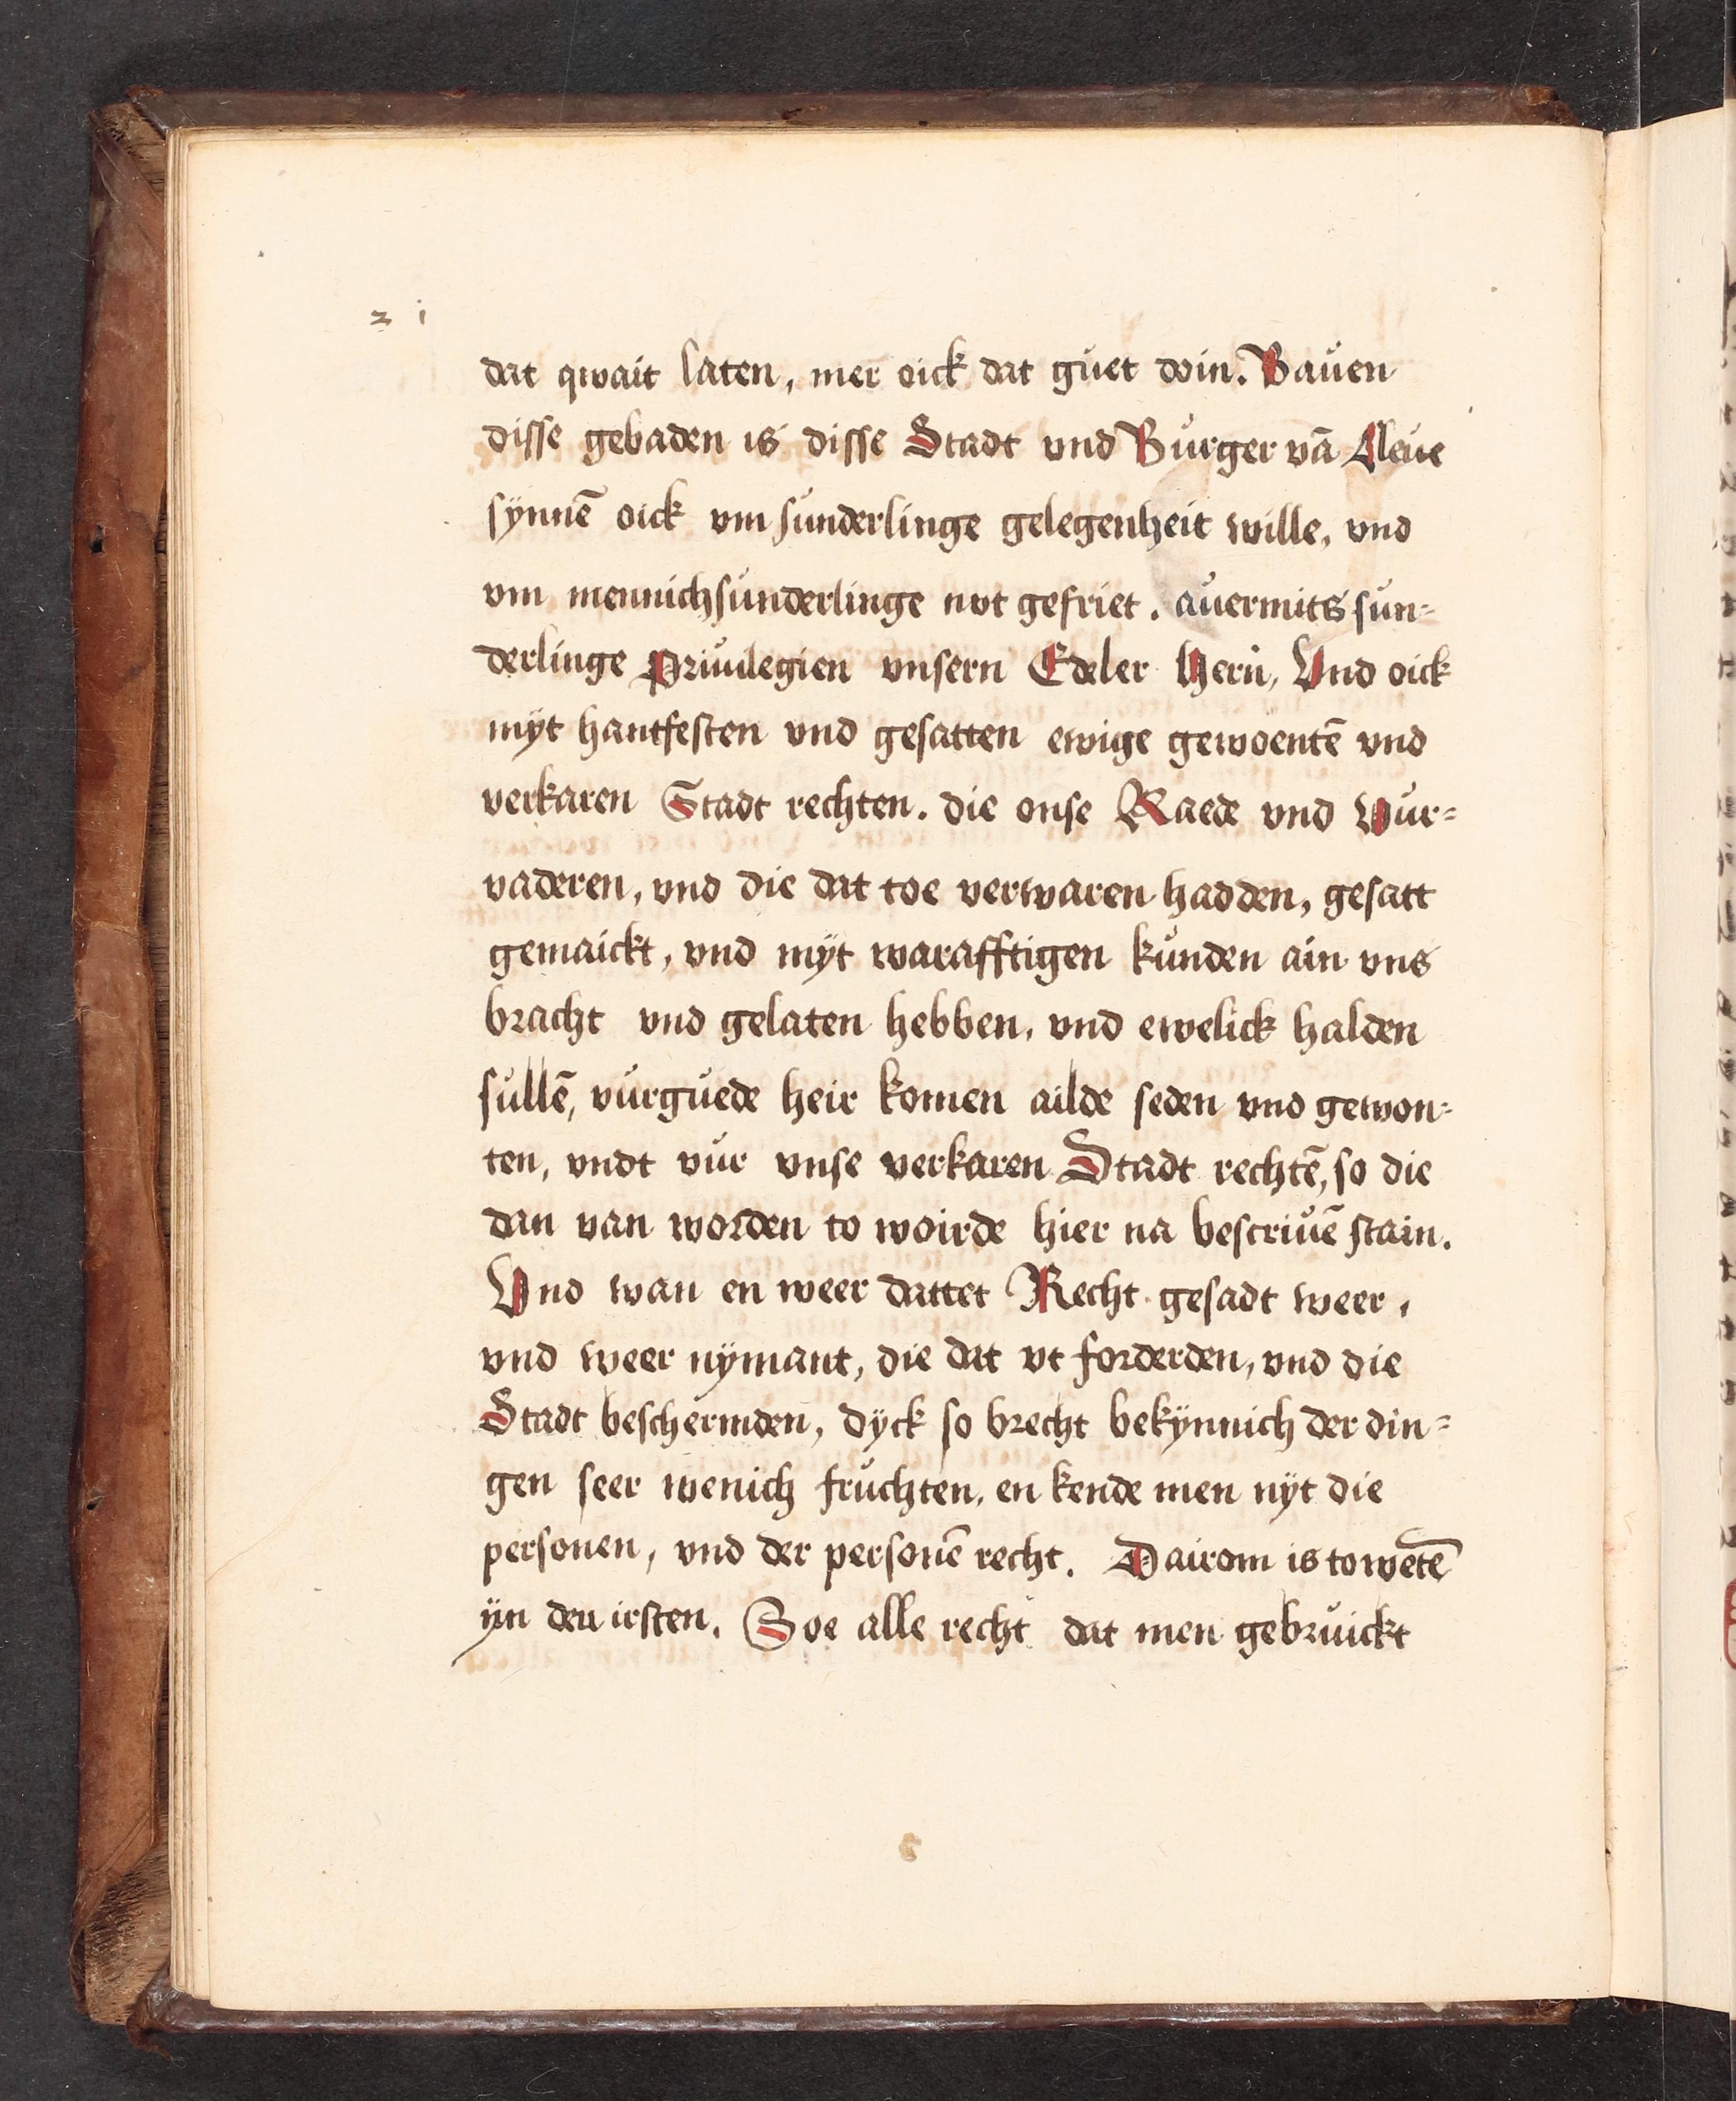 2 i
dat qwait laten, mer oick dat guet doin. Bauen
disse gebaden is disse Stadt vnd Burger vā Cleue
sÿnnē oick vm sunderlinge gelegenheit wille, vnd
vm mennichsunderlinge not gefriet. auermits sun=
derlinge Priuilegien vnsern Edeler Hern, Vnd oick
mÿt hantfesten vnd gesatten ewige gewoentē vnd
verkaren Stadt rechten. die onse Raede vnd Vur=
vaderen, vnd die dat toe verwaren hadden, gesatt
gemaickt, vnd mÿt warafftigen kunden ain vns
bracht vnd gelaten hebben, vnd ewelick halden
sullē, vurguede heir komen ailde seden vnd gewon=
ten, vndt vur vnse verkaren Stadt rechtē, so die
dan van worden to woirde hier na bescriuē stain.
Vnd wan en weer dattet Recht gesadt weer,
vnd weer nÿmant, die dat vt forderden, vnd die
Stadt beschermden, dÿck so brecht bekÿnnich der din=
gen seer wenich fruchten, en kende men nÿt die
personen, vnd der personē recht. Dairom is to wetē
ÿn den irsten. Soe alle recht dat men gebruickt